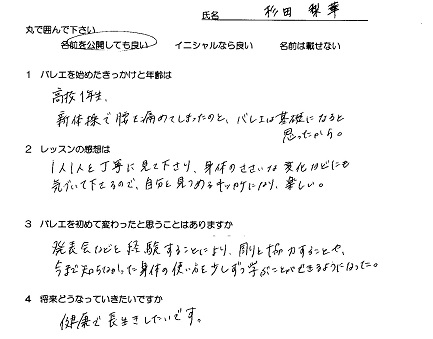 氏名 杉田 梨華
丸で囲んで下さい
名前を公開しても良い イニシャルなら良い 名前は載せない
1 バレエを始めたきっかけと年齢は
高校1年生。
新体操で腰を痛めてしまったのと、バレエは基礎になると
思ったから。
2 レッスンの感想は
1人1人を丁寧に見て下さり、身体のささいな変化などにも
気づいて下さるので、自分を見つめるキッカケになり、楽しい。
3 バレエを初めて変わったと思うことはありますか
発表会などを経験することにより、周りと協力することや、
今まで知らなかった身体の使い方を少しずつ学ぶことができるようになった。
4 将来どうなっていきたいですか
健康で長生きしたいです。